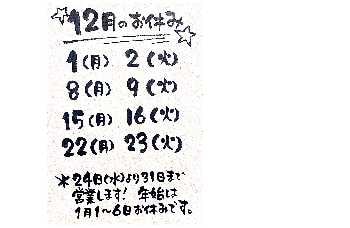 12月のお休み
1(月) 2(火)
8(月) 9(火)
15(月) 16(火)
22(月) 23(火)
*24日(水)より31日まで
営業します! 年始は
1月1〜6日お休みです。